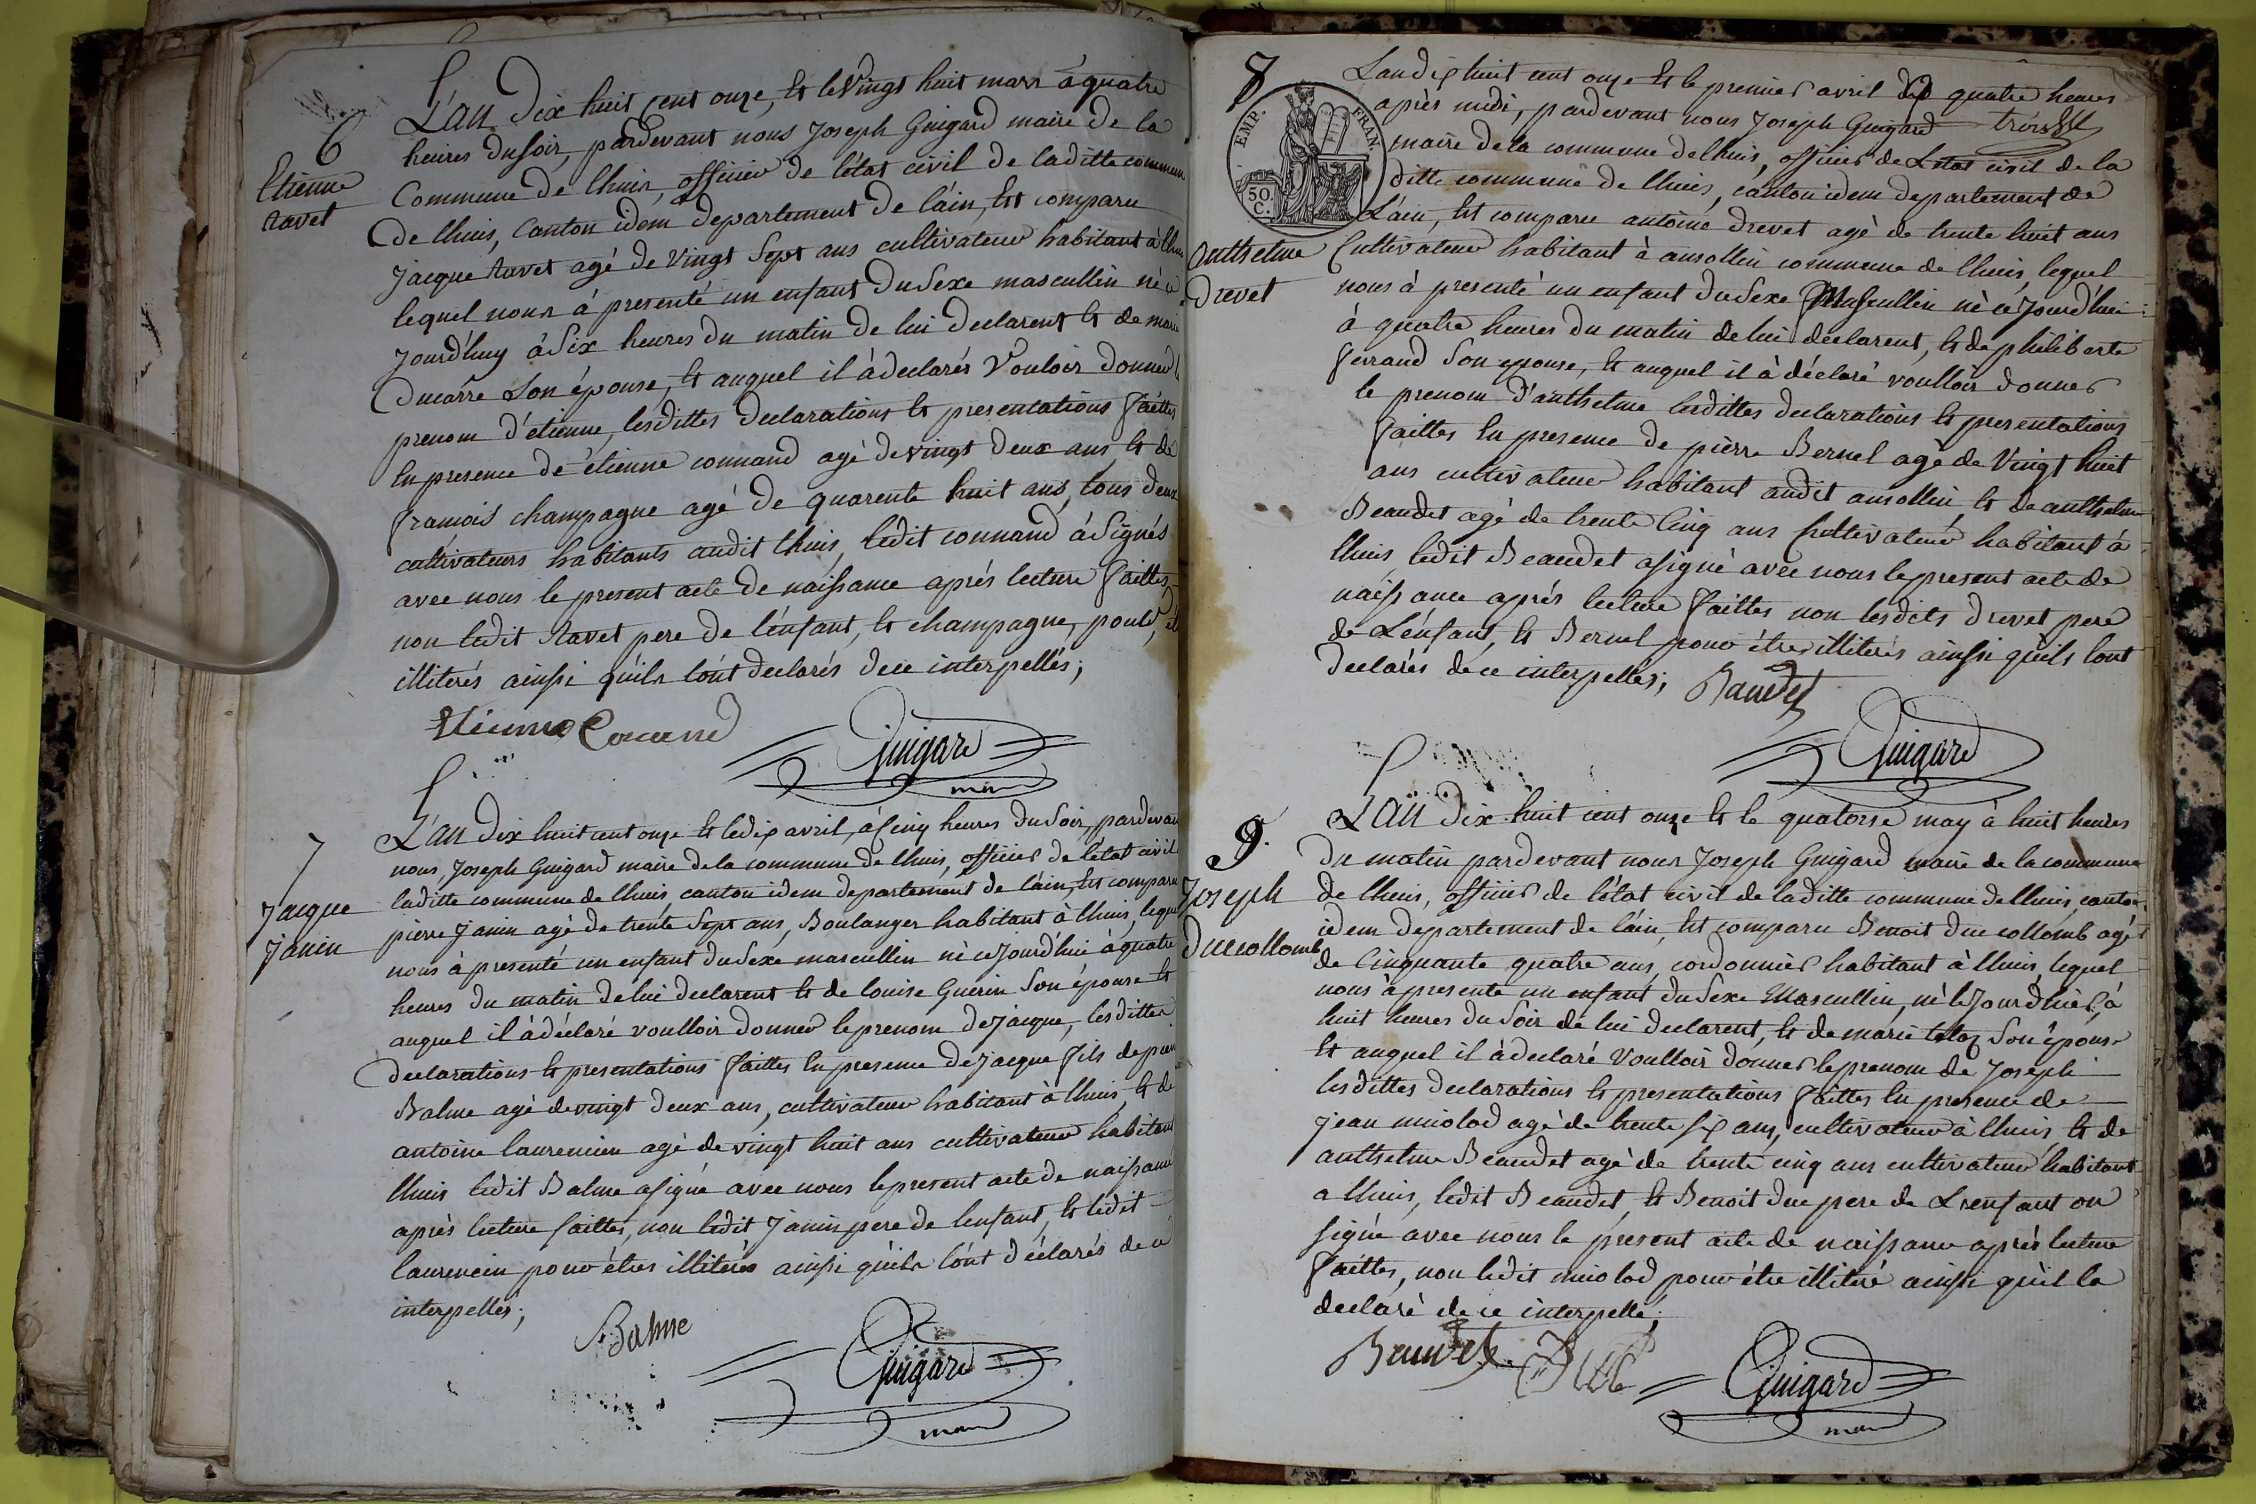 6
Etienne
Ravet
L'an Dix huit cent onze, Et le Vingt huit mars à quatre
heures du soir, pardevant nous Joseph Guigard maire de la
Commune de lhuis, officier de l'état civil de laditte commune
De lhuis, Canton idem departement de l'ain, Est comparu
Jacque Ravet agé de vingt Sept ans cultivateur habitant à lhuis
lequel nous à presenté un enfant du Sexe mascullin né ce
Jourd'huy à Six heures du matin de lui declarent Et de marie
Ducarre Son épouse, Et auquel il à declarés Vouloir donner le
prenom d'étienne, lesdittes declarations Et presentations faittes
En presence de étienne connand agé de vingt Deux ans, Et de
francois champagne agé de quarente huit ans, tous deux
cultivateurs habitants audit lhuis, ledit connand à Signés
avec nous le present acte de naissance aprés lecture faittes,
non ledit Ravet pere de l'énfant, Et champagne, pour,
illiterés ainsi qu'ils l'ont declarés de ce interpellés;
Etienne Conand
Guigard
maire
7
Jacque
Janin
L'an Dix huit cent onze Et le dix avril, à Cinq heures Du Soir, pardevant
nous, Joseph Guigard maire de la commune de lhuis, officier de l'état civil
laditte commune de lhuis, canton idem departement de l'ain, Est comparu
pierre Janin agé de trente Sept ans, Boulanger habitant à lhuis, lequel
nous à presenté un enfant du Sexe mascullin né ce Jourd'hui à quatre
heures du matin de lui declarent Et de louise Guerin Son épouse Et
auquel il à déclaré voulloir donner le prenom de Jacque, lesdittes
declarations Et presentations faittes En presence de Jacque fils de pierre
Balme agé de vingt deux ans, cultivateur habitant à lhuis, Et de
antoine laurencin agé de vingt huit ans cultivateur habitant
lhuis ledit Balme a signé avec nous le present acte de naissance
aprés lecture faittes, non ledit Janin pere de lenfant, Et ledit
laurencin pour étres illiterés ainsi qu'ils l'ont déclarés de ce
interpellés;
Balme
Guigard
maire
8
EMP. FRAN.
50. C.
Anthelme
Drevet
L'an dix huit cent onze Et le premier avril à quatre heures
aprés midi, pardevant nous Joseph Guigard
maire de la commune de lhuis, officier de Letat civil de la
ditte commune de lhuis, canton idem departement de
L'ain, Est comparu antoine Drevet agé de trente huit ans
Cultivateur habitant à ansollin commune de lhuis, lequel
nous à presenté un enfant du Sexe Mascullin né ce Jourd'hui
à quatre heures du matin de lui declarent, Et de philiberte
ferrand Son epouse, Et auquel il à déclaré voulloir donner
le prenom d'anthelme lesdittes declarations Et presentations
faittes En presence de pierre Bernel agé de Vingt huit
ans cultivateur habitant audit ansollin Et de anthelme
Beaudet agé de trente Cinq ans Cultivateur habitant à
lhuis, ledit Beaudet a signé avec nous le present acte de
naissance aprés lecture faittes non lesdits Drevet pere
de L'énfant, Et Bernel pour étres illiterés ainssi qu'ils lont
declarés de ce interpellés;
Baudet
Guigard
9.
Joseph
Duccollomb
L'an Dix huit cent onze Et le quatorse may à huit heures
du matin pardevant nous Joseph Guigard maire de la commune
de lhuis, officier de l'état civil de laditte commune de lhuis, canton
idem departement de l'ain, Est comparu Benoit duc collomb agé
de Cinquante quatre ans, cordonnier habitant à lhuis, lequel
nous à presenté un enfant du Sexe Mascullin, né le Jourd'hier, à
huit heures du Soir de lui declarent, Et de marie Son épouse
Et auquel il à declaré Voulloir donner le prenom de Joseph
lesdittes declarations Et presentations faittes En presence de
jean miolod agé de trente six ans, cultivateur à lhuis, Et de
anthelme Beaudet agé de trente cinq ans cultivateur habitant
a lhuis, ledit Beaudet, Et Benoit duc pere de L'enfant on
signé avec nous le present acte de naissance aprés lecture
faittes, non ledit miolod pour étre illiteré ainssi qu'il la
declaré de ce interpellé;
Beaudet Duc
Guigard
maire